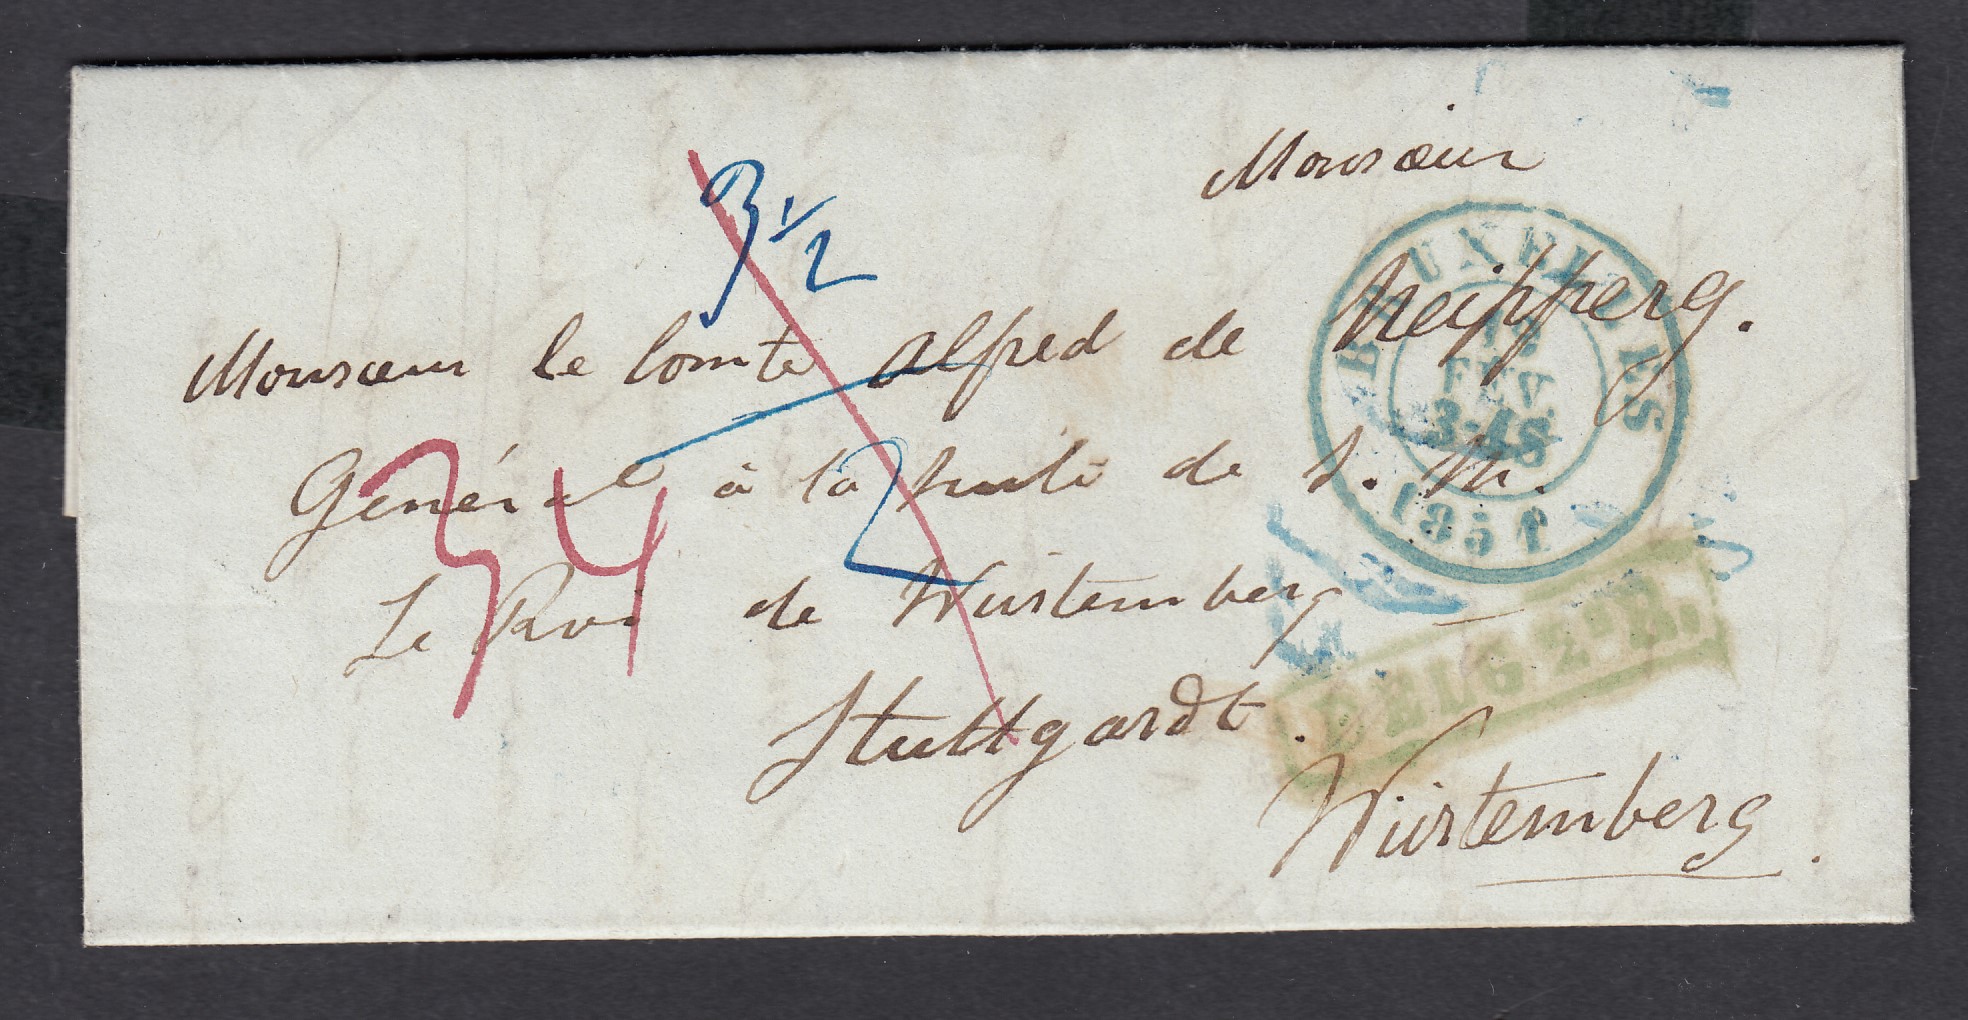 Monsieur
3 1/2
Monsieur le Comte Alfred de Neipperg.
Général à la suite de S. M.
Le Roi de Würtemberg
Stuttgardt.
Würtemberg.
34
2
BRUXELLES
FEV.
3-4S
1851
BELG 2e R.